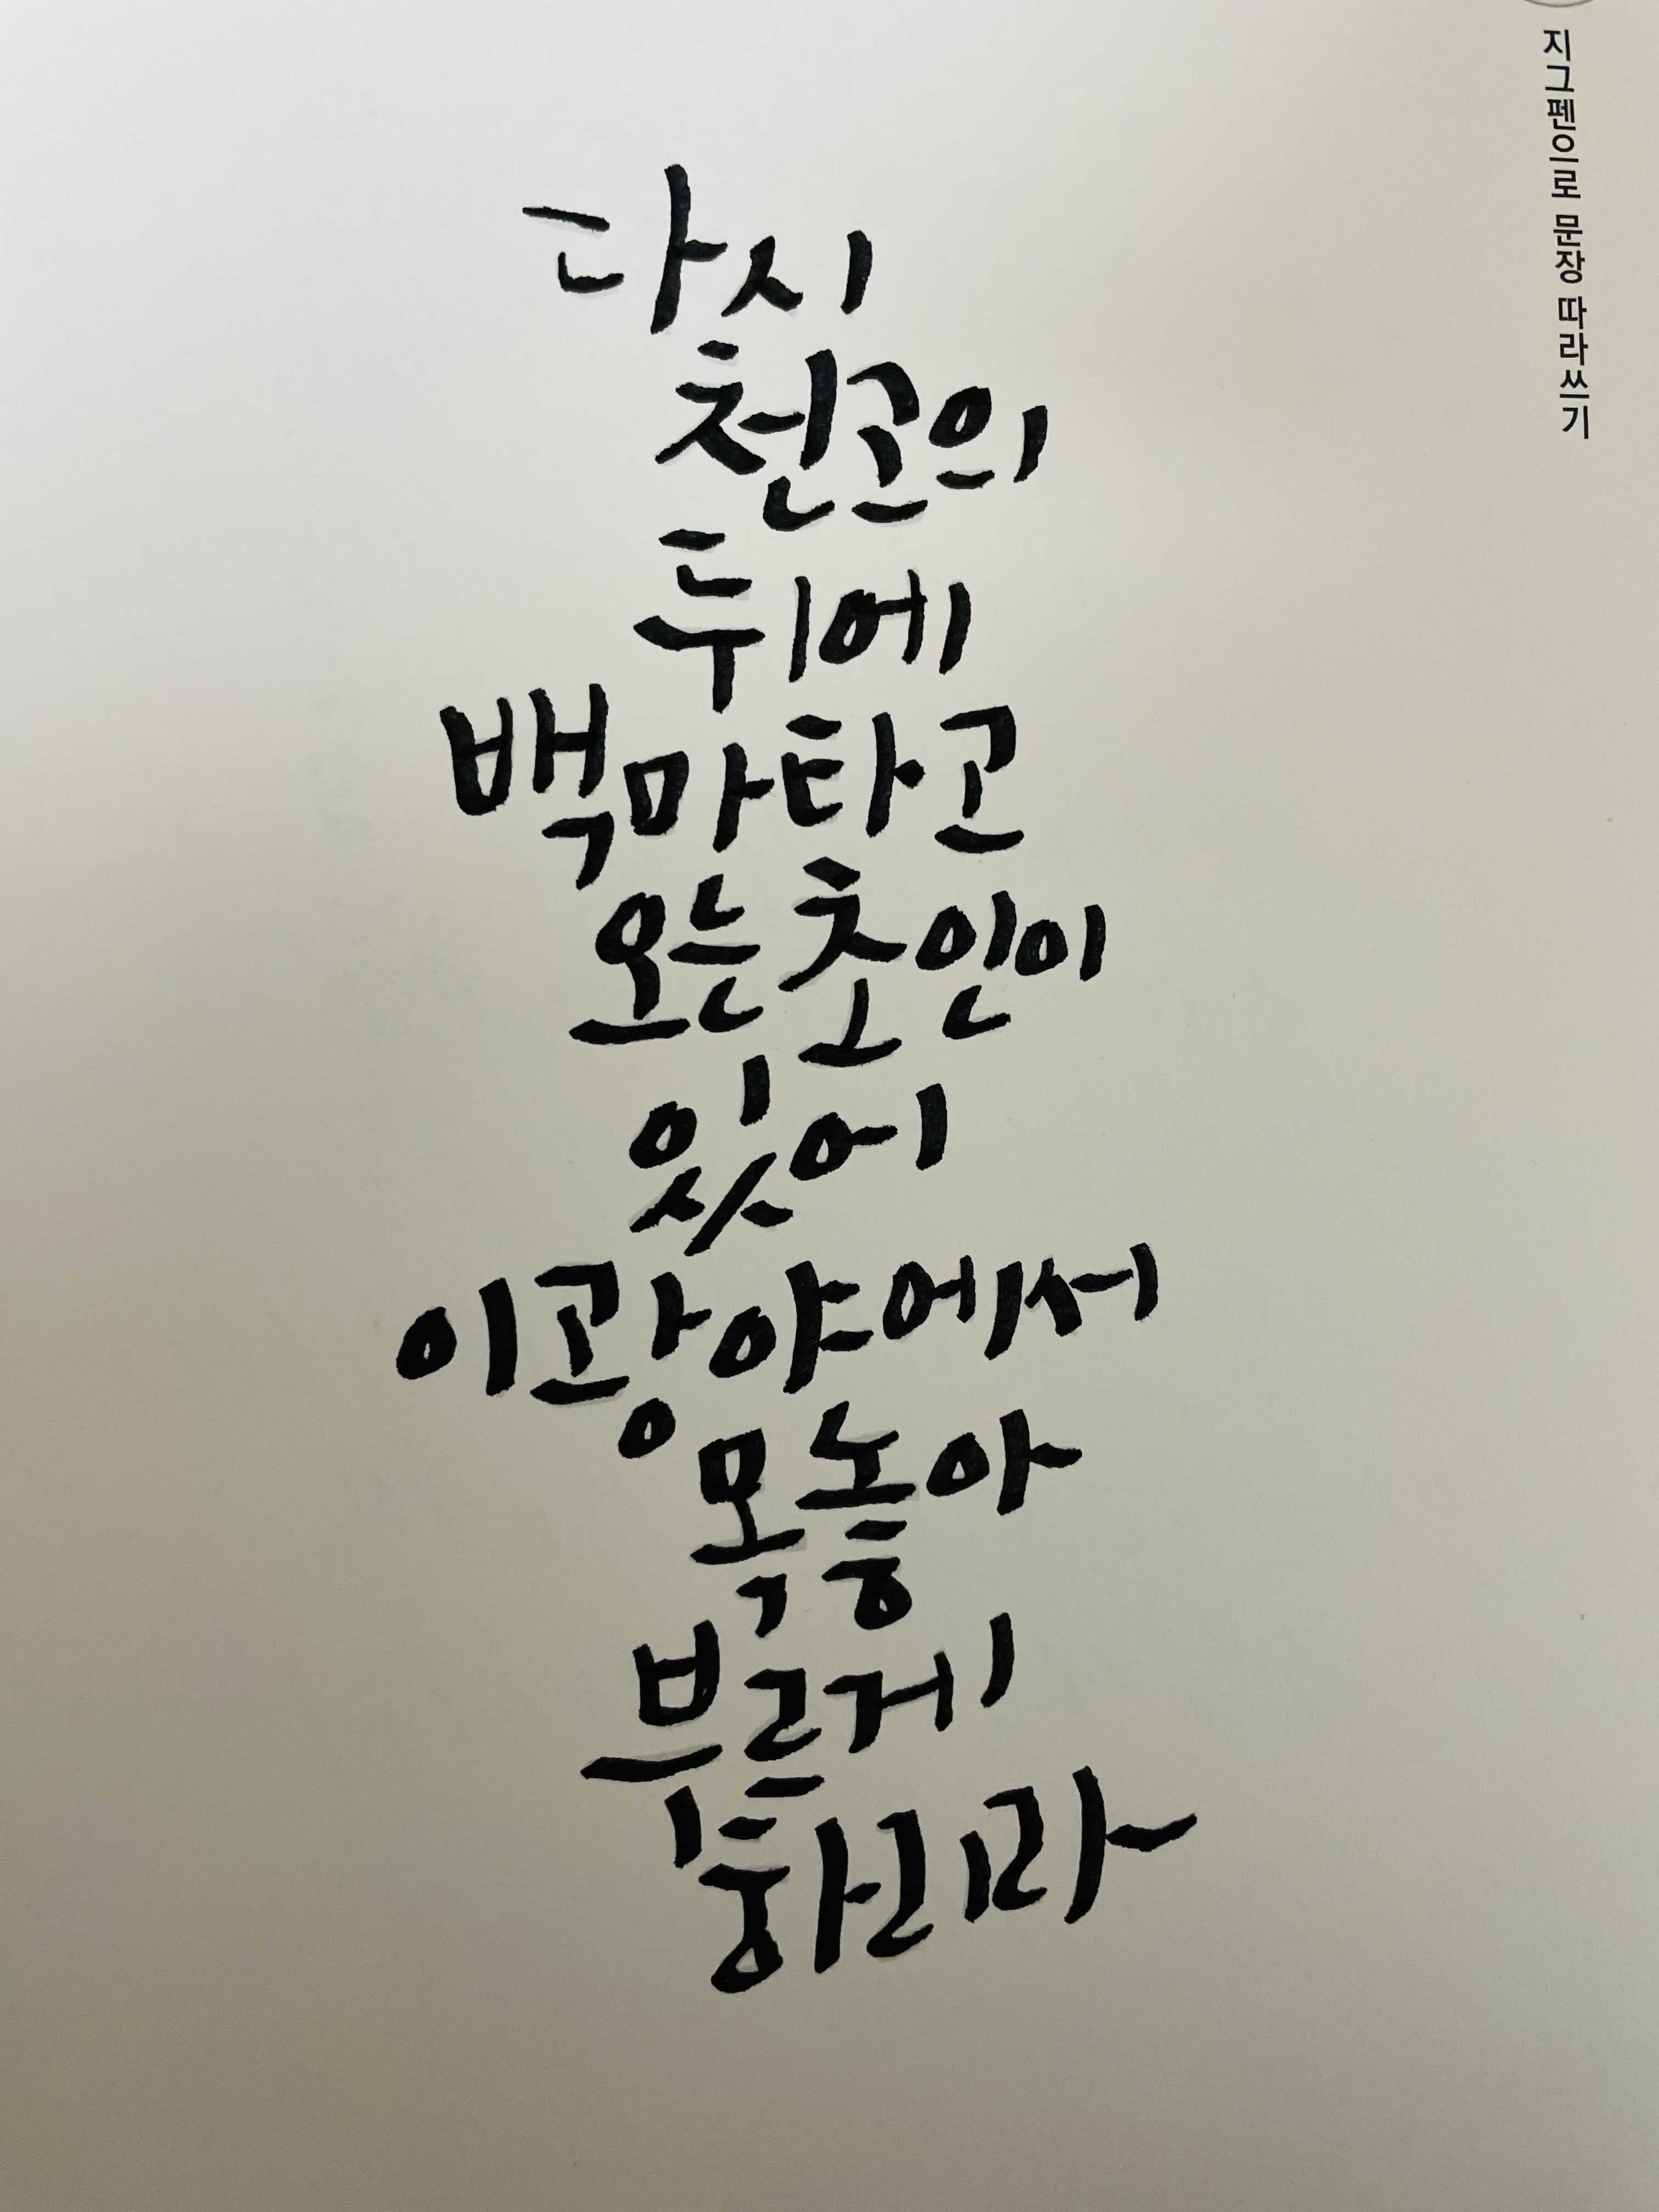 지그펜으로 문장 따라쓰기
다시
천고의
뒤에
백마타고
오는 초인이
있어
이 광야에서
목놓아
부르게
하리라